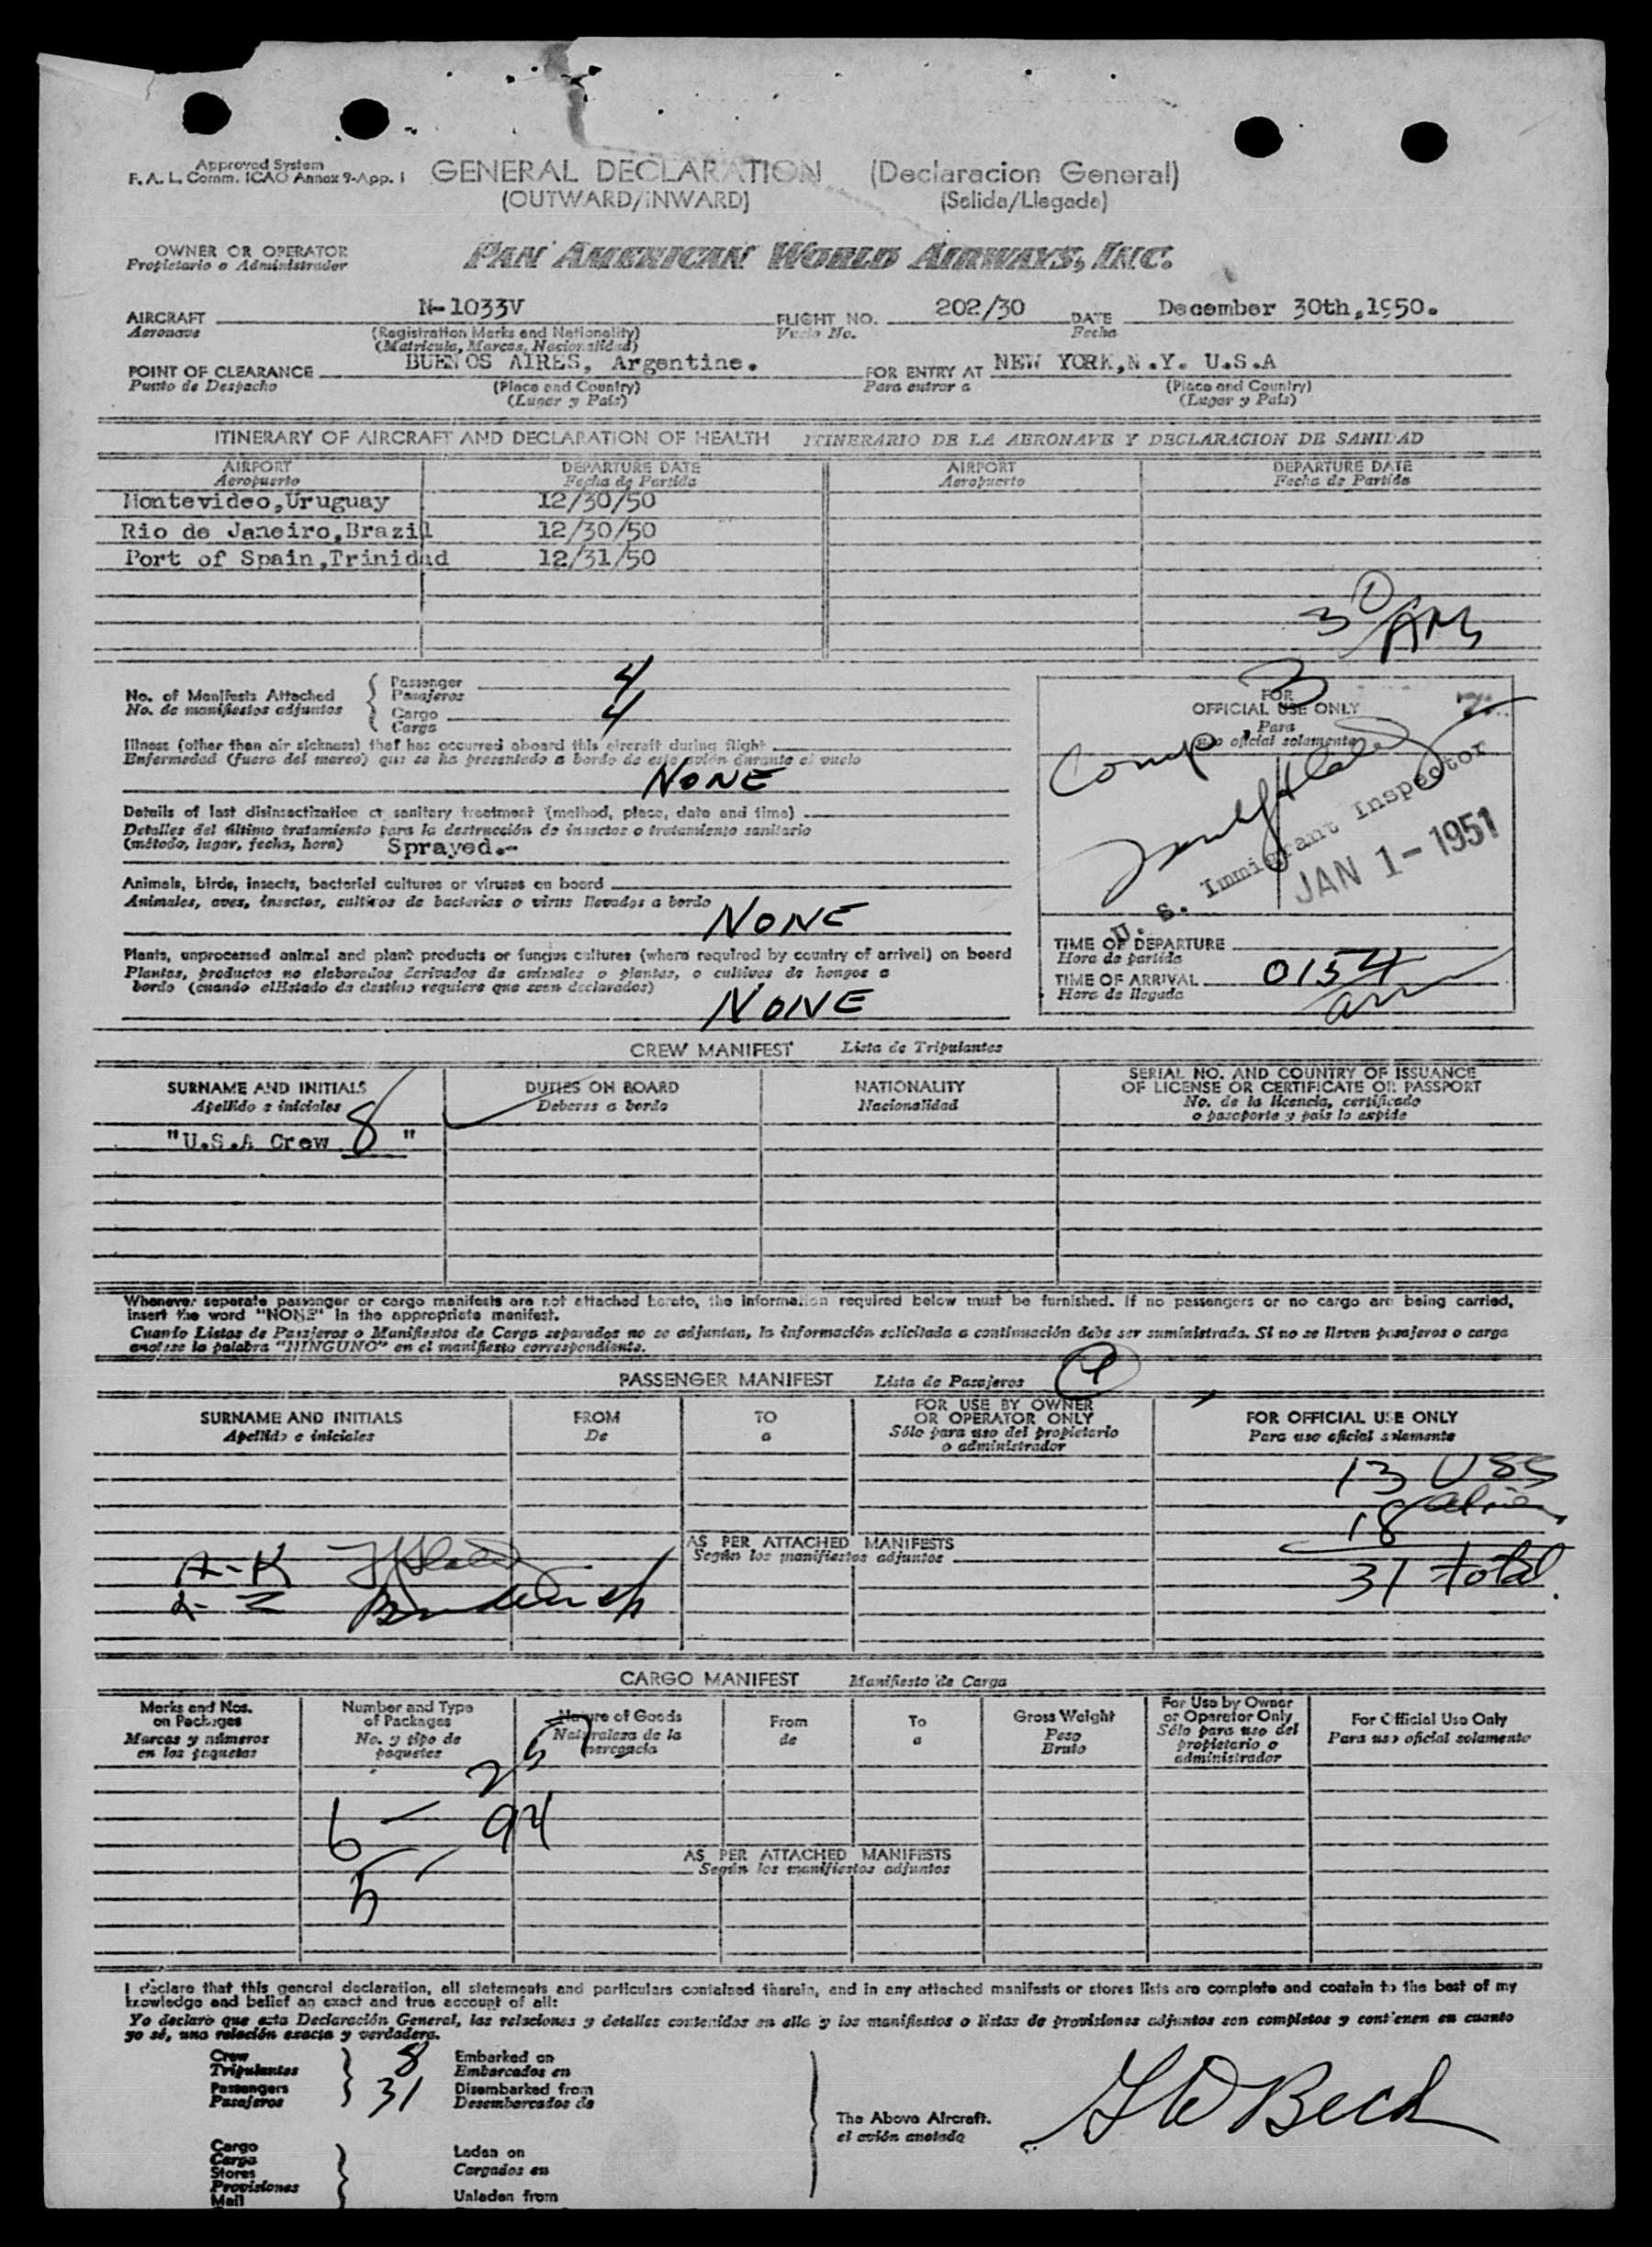 Approved System
F. A. L. Comm. ICAO Annex 9-App. 1
GENERAL DECLARATION (Declaracion General)
(OUTWARD/INWARD) (Salida/Llegada)
OWNER OR OPERATOR
Propietario o Administrador
PAN AMERICAN WORLD AIRWAYS, INC.
AIRCRAFT N-1033V FLIGHT NO. 202/30 DATE December 30th,1950.
Aeronave (Registration Marks and Nationality) Vuelo No. Fecha
(Matricula, Marcas, Nacionalidad)
POINT OF CLEARANCE BUENOS AIRES, Argentine. FOR ENTRY AT NEW YORK,N.Y. U.S.A
Punto de Despacho (Place and Country) Para entrar a (Place and Country)
(Lugar y País) (Lugar y País)
ITINERARY OF AIRCRAFT AND DECLARATION OF HEALTH ITINERARIO DE LA AERONAVE Y DECLARACION DE SANIDAD
AIRPORT DEPARTURE DATE AIRPORT DEPARTURE DATE
Aeropuerto Fecha de Partida Aeropuerto Fecha de Partida
Montevideo,Uruguay 12/30/50
Rio de Janeiro,Brazil 12/30/50
Port of Spain,Trinidad 12/31/50
No. of Manifests Attached
No. de manifiestos adjuntos
Passenger 4
Pasajeros
Cargo 4
Carga
Illness (other than air sickness) that has occurred aboard this aircraft during flight
Enfermedad (fuera del mareo) que se ha presentado a bordo de este avión durante el vuelo
NONE
Details of last disinsectization or sanitary treatment (method, place, date and time)
Detalles del último tratamiento para la destrucción de insectos o tratamiento sanitario
(método, lugar, fecha, hora) Sprayed.-
Animals, birds, insects, bacterial cultures or viruses on board
Animales, aves, insectos, cultivos de bacterias o virus llevados a bordo
NONE
Plants, unprocessed animal and plant products or fungus cultures (where required by country of arrival) on board
Plantas, productos no elaborados derivados de animales o plantas, o cultivos de hongos a
bordo (cuando elEstado de destino requiere que sean declarados)
NONE
3
FOR
OFFICIAL USE ONLY
Para
uso oficial solamente
Comp.
U. S. Immigrant Inspector
JAN 1-1951
TIME OF DEPARTURE
Hora de partida
TIME OF ARRIVAL 0154
Hora de llegada
CREW MANIFEST Lista de Tripulantes
SURNAME AND INITIALS DUTIES ON BOARD NATIONALITY SERIAL NO. AND COUNTRY OF ISSUANCE
Apellido e iniciales Deberes a bordo Nacionalidad OF LICENSE OR CERTIFICATE OR PASSPORT
No. de la licencia, certificado
o pasaporte y país lo expide
"U.S.A Crew 8 "
Whenever separate passenger or cargo manifests are not attached hereto, the information required below must be furnished. If no passengers or no cargo are being carried,
insert the word "NONE" in the appropriate manifest.
Cuando Listas de Pasajeros o Manifiestos de Carga separados no se adjuntan, la información solicitada a continuación debe ser suministrada. Si no se lleven pasajeros o carga
anotese la palabra "NINGUNO" en el manifiesto correspondiente.
PASSENGER MANIFEST Lista de Pasajeros 4
SURNAME AND INITIALS FROM TO FOR USE BY OWNER FOR OFFICIAL USE ONLY
Apellido e iniciales De a OR OPERATOR ONLY Para uso oficial solamente
Sólo para uso del propietario
o administrador
13 USS
18 alien
31 total.
AS PER ATTACHED MANIFESTS
Según los manifiestos adjuntos
A-K
L-Z
CARGO MANIFEST Manifiesto de Carga
Marks and Nos. Number and Type Nature of Goods From To Gross Weight For Use by Owner For Official Use Only
on Packages of Packages Naturaleza de la de a Peso or Operator Only Para uso oficial solamente
Marcas y números No. y tipo de mercancia Bruto Sólo para uso del
en los paquetes paquetes propietario o
administrador
6 - 94
5
AS PER ATTACHED MANIFESTS
Según los manifiestos adjuntos
I declare that this general declaration, all statements and particulars contained therein, and in any attached manifests or stores lists are complete and contain to the best of my
knowledge and belief an exact and true account of all:
Yo declaro que esta Declaración General, las relaciones y detalles contenidos en ella y los manifiestos o listas de provisiones adjuntos son completos y contienen en cuanto
yo sé, una relación exacta y verdadera.
Crew 8 Embarked on
Tripulantes Embarcados en
Passengers 31 Disembarked from
Pasajeros Desembarcados de
The Above Aircraft.
el avión anotado
Cargo Laden on
Carga Cargados en
Stores
Provisiones Unladen from
Mail